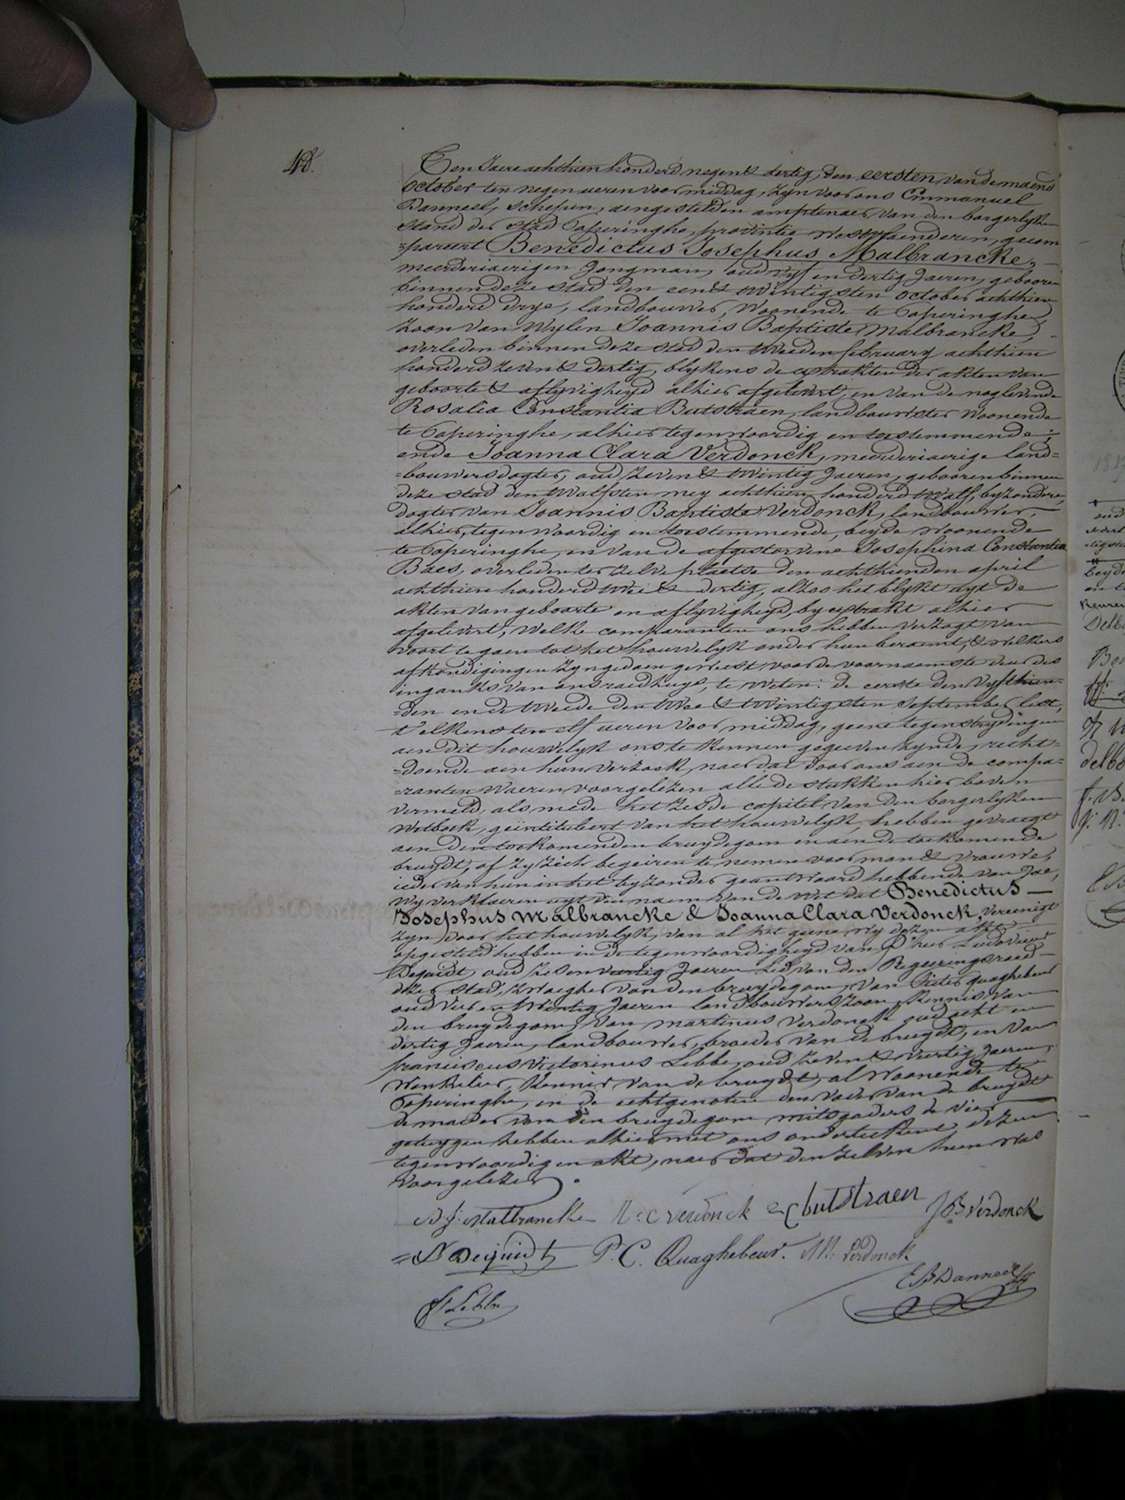 48.
Ten Jaere achthien honderd negen & dertig, den eersten van de maend
october ten negen ueren voormiddag, zyn voor ons Emmanuel
Danneel, schepen, aengestelden amptenaer van den borgerlyken
stand der stad Poperinghe, provintie Westvlaenderen, gecom-
-pareert Benedictus Josephus Malbrancke,
meerderiaerigen Jongman, oud vyf en dertig Jaeren, gebooren
binnen deze stad den een & twintigsten october achthien
honderd drye, landbouwer, woonende te Poperinghe,
zoon van wylen Joannis Baptiste Malbrancke,
overleden binnen deze stad den tweeden february achthien
honderd zeven & dertig, blykens de extrakten der akten van
geboorte & aflyvigheyd alhier afgelevert, en van de noglevende
Rosalia Constantia Butstraen, landbouwster woonende
te Poperinghe, alhier tegenwoordig en toestemmende;
ende Joanna Clara Verdonck, meerderiaerige land-
-bouwersdogter, oud zeven & twintig Jaeren, gebooren binnen
deze stad den twalfsten mey achthien honderd twalf, byzondere
dogter van Joannis Baptiste Verdonck, landbouwer,
alhier tegenwoordig en toestemmende, beyde woonende
te Poperinghe, en van de afgestorvene Josephina Constantia
Baes, overleden ter zelve plaetse den achthienden april
achthien honderd twee & dertig, alzoo het blykt uyt de
akten van geboorte en aflyvigheyd, by extrakt alhier
afgelevert, welke comparanten ons hebben verzogt van
voort te gaen tot het houwelyk onder hun beraemt, & welkers
afkondigingen zyn gedaen geweest voor de voornaemste deur des
ingangs van ons raedhuys, te weten: de eerste den vyfthien-
-den en de tweede den twee & twintigsten September lest,
t'elkens ten elf ueren voormiddag, geene tegenstrydingen
aen dit houwelyk ons te kennen gegeven zynde, recht-
-doende aen hun verzoek, naer dat voor ons aen de compa-
-ranten waeren voorgelezen alle de stukken hier boven
vermeld, als mede het zesde capitel van den borgerlyken
wetboek, geintituleert van het houwelyk, hebben gevraegt
aen den toekomenden bruydegom en aen de toekomende
bruydt, of zy zich begeiren te nemen voor man & vrouwe,
ieder van hun in het byzonder geantwoord hebbende van Jae,
wy verklaeren uyt den naem van de wet dat Benedictus
Josephus Malbrancke & Joanna Clara Verdonck, vereenigt
zyn door het houwelyk, van al het geene wy dezen akt
opgesteld hebben in de tegenwoordigheyd van d'heer Ludovicus
Dequidt oud Jaeren Lid van den Regeeringsraed
dezer stad, zwaegher van den bruydegom, van Pieter Quaghebeur
oud vier en twintig Jaeren landbouwerszoon, kennis van
den bruydegom, van Martinus Verdonck oud acht en
dertig Jaeren, landbouwer, broeder van de bruydt, en van
franciscus Victorinus Lebbe, oud zeven & veertig Jaeren,
winkelier, kennis van de bruydt, al woonende te
Poperinghe, en de echtgenoten den vader van de bruydt
de moeder van den bruydegom mitsgaders de vier
getuygen hebben alhier met ons onderteekent dezen
tegenwoordigen akt, naer dat den zelven hun was
voorgelezen.
B J: Malbrancke C Verdonck C butstraen J B: Verdonck
L Dequidt P. C. Quaghebeur. M Verdonck
F Lebbe E B Danneel